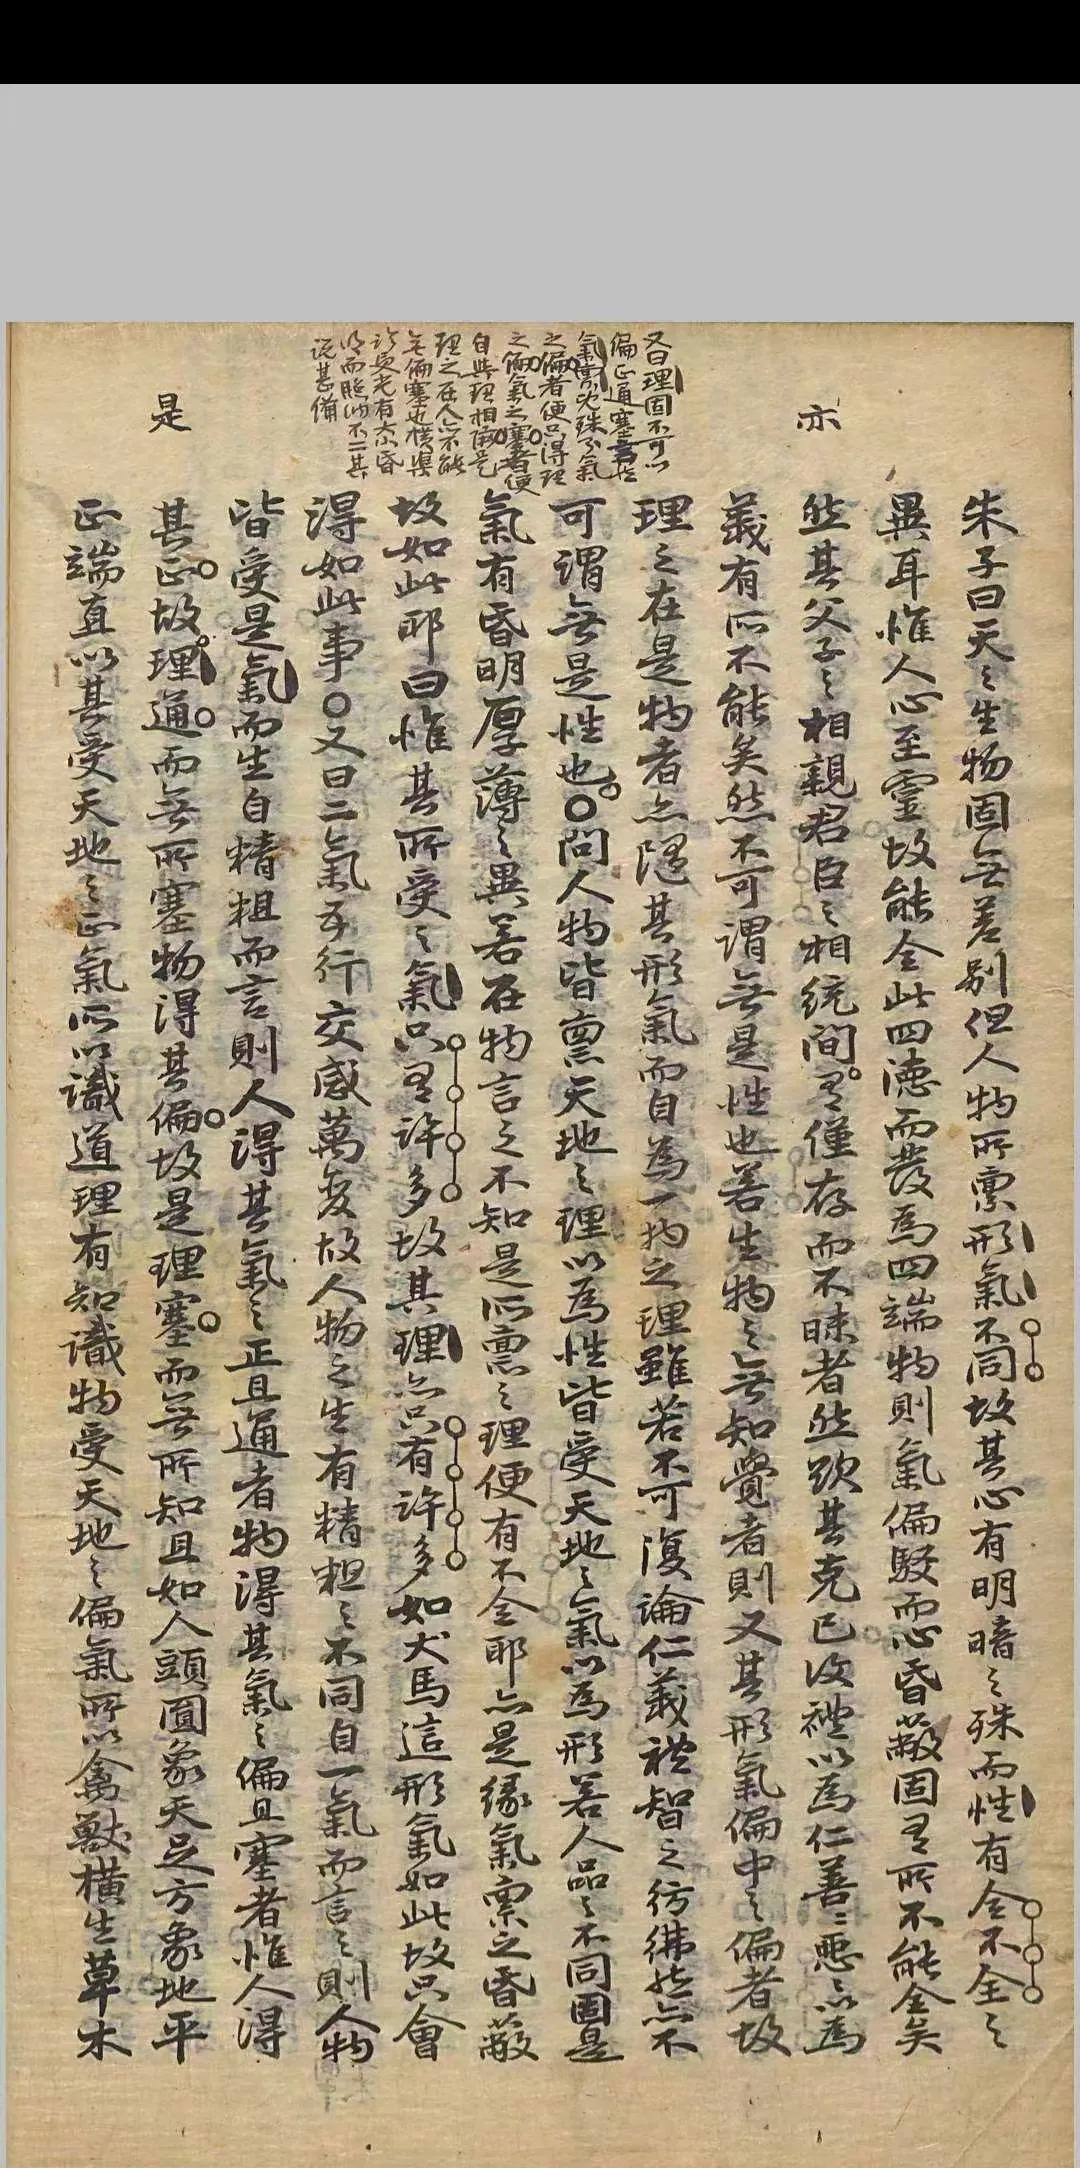 亦
是
又曰理固不可以
偏正通塞言然
氣禀既殊則氣
之偏者便只得理
之偏氣之塞者便
自與理相隔是
理之在人亦不能
無偏塞也橫渠
而昏
明而照納不一其
說甚備
朱子曰天之生物固無差別但人物所禀形氣不同故其心有明暗之殊而性有全不全之
異耳惟人心至靈故能全此四德而發為四端物則氣偏駁而心昏蔽固有所不能全矣
然其父子之相親君臣之相統間有僅存而不昧者然欲其克己復禮以為仁善善惡惡以為
義有所不能矣然不可謂無是性也若生物之無知覺者則又其形氣偏中之偏者故
理之在是物者亦隨其形氣而自為一物之理雖若不可復論仁義禮智之彷彿然亦不
可謂無是性也○問人物皆禀天地之理以為性皆受天地之氣以為形若人品之不同固是
氣有昏明厚薄之異若在物言之不知是所禀之理便有不全耶亦是緣氣禀之昏蔽
故如此耶曰惟其所受之氣只有許多故其理亦只有許多如犬馬這形氣如此故只會
得如此事○又曰二氣五行交感萬變故人物之生有精粗之不同自一氣而言之則人物
皆受是氣而生自精粗而言則人得其氣之正且通者物得其氣之偏且塞者惟人得
其正故理通而無所塞物得其偏故是理塞而無所知且如人頭圓象天足方象地平
正端直以其受天地之正氣所以識道理有知識物受天地之偏氣所以禽獸橫生草木